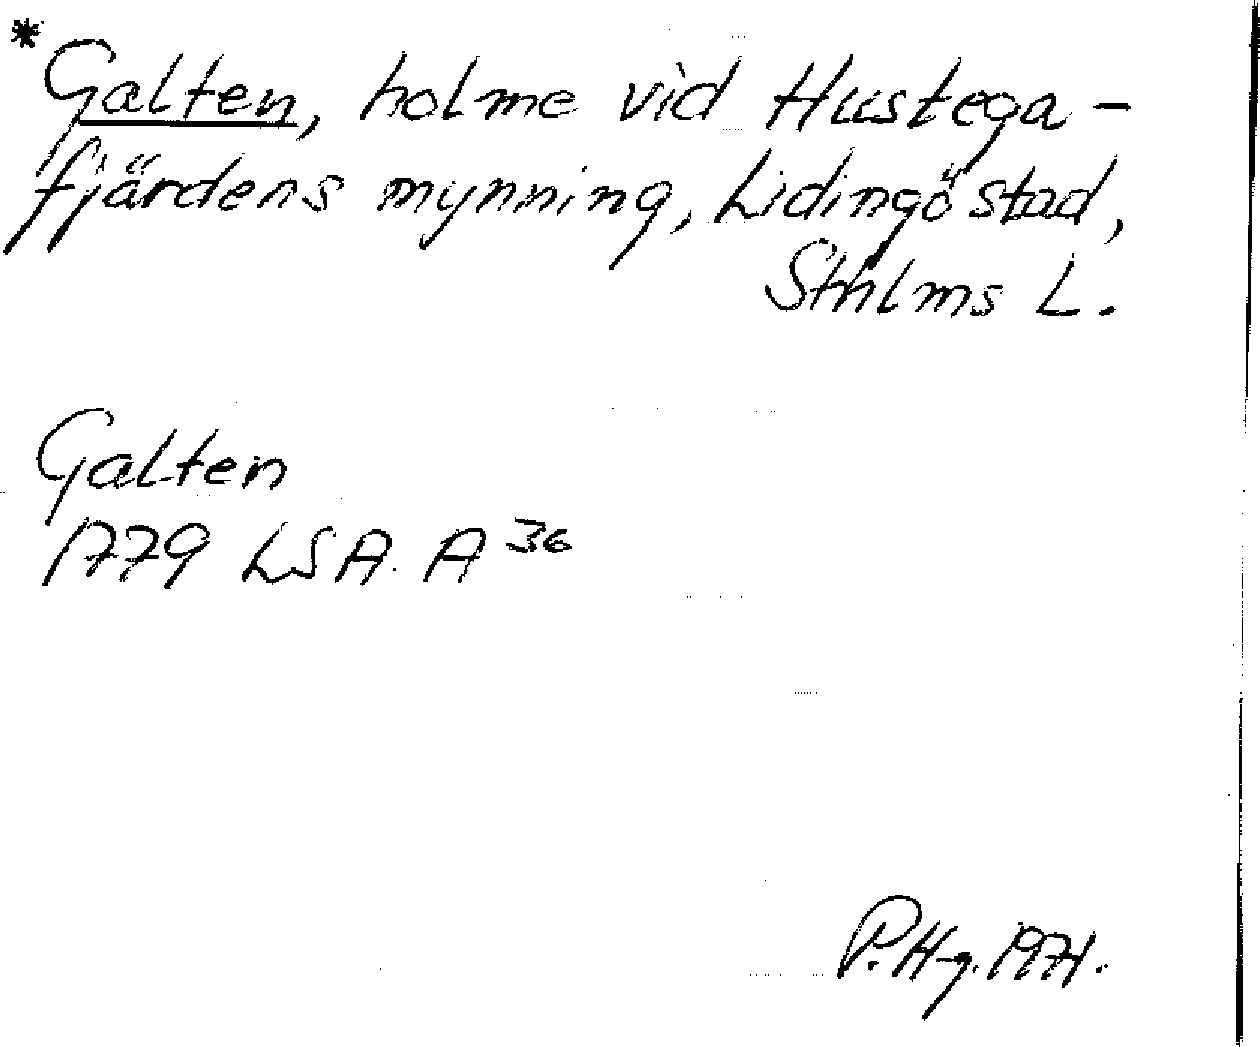 * Galten, holme vid Hustega-
fjärdens mynning, Lidingö stad,
Sthlms L.
Galten
1779 LSA. A 36
P. H-g. 1971.